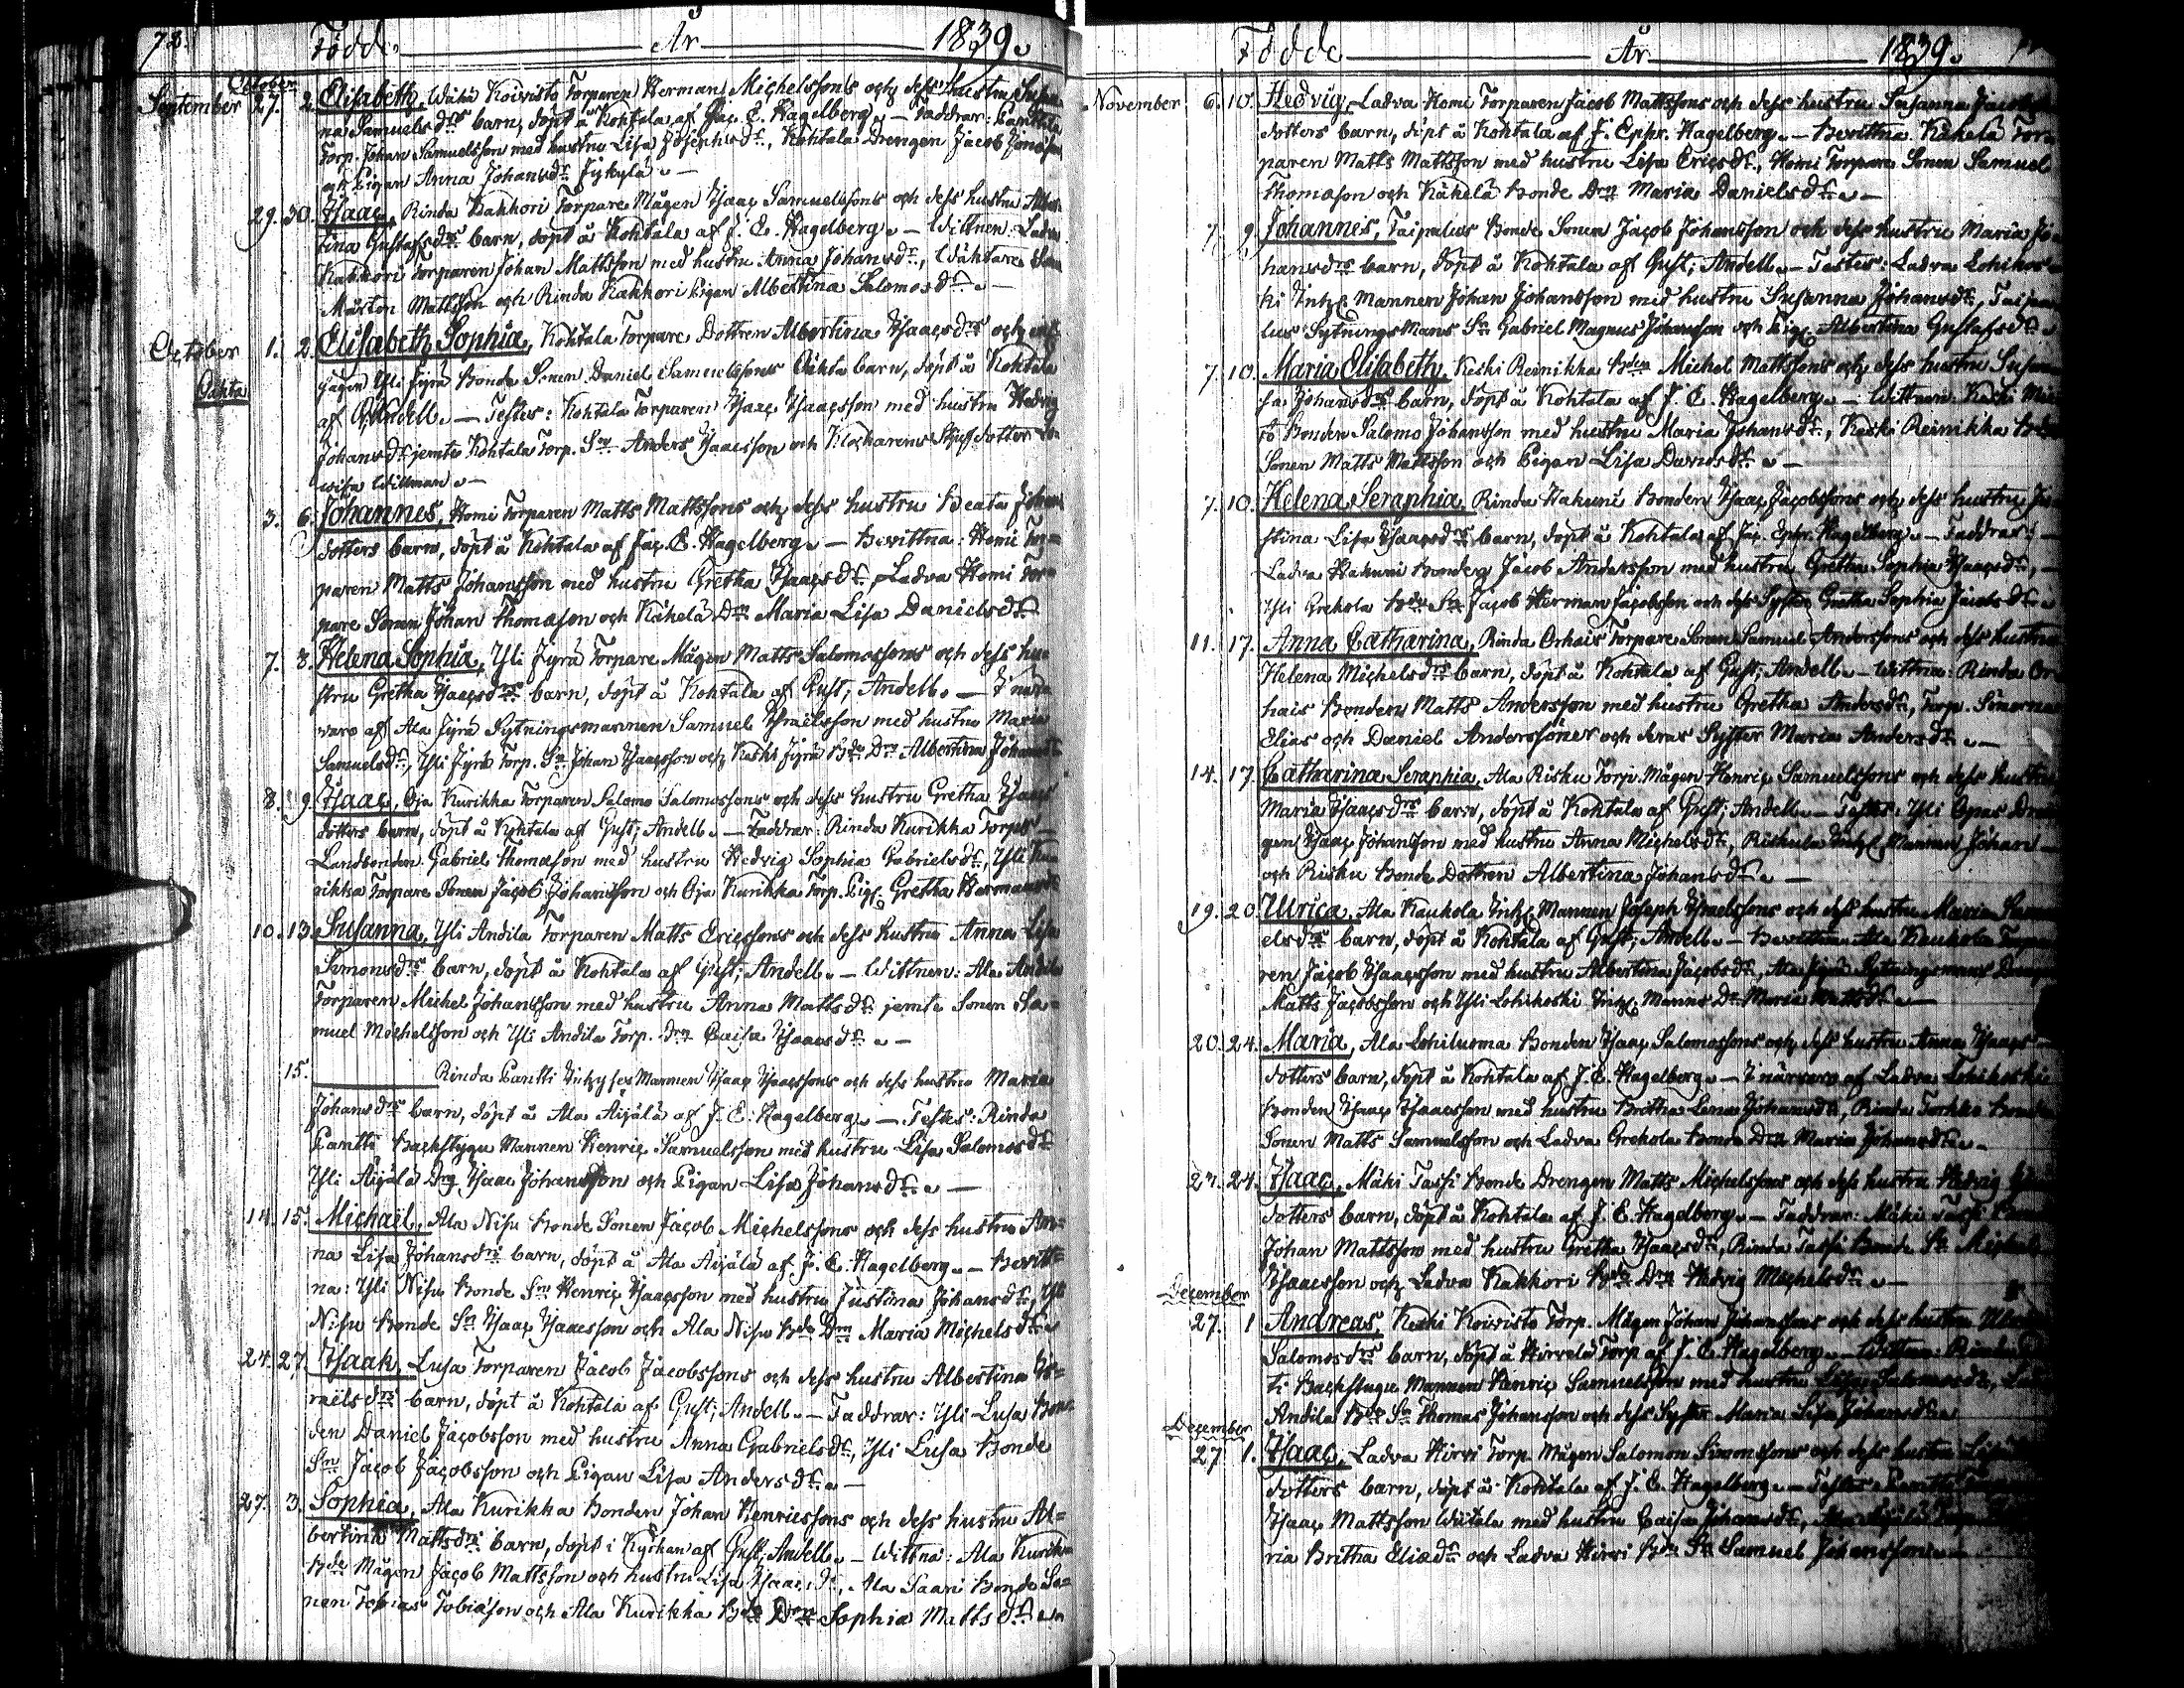 78. Födde År 1839.
October
September 27. 2. Elisabeth, Koivisto Torparen Herman Michelssons och dess hustru Susan
na Samuelsdrs barn, döpt å Kohtala af Jac. E. Hagelberg. — Faddrar:
Torp. Johan Samuelsson med hustru Lisa Josephsdr, Kohtala Drengen Jacob
och Pigan Anna Johansdr Jykylä. —
29. 30. Isaac, Rinda Kakkori Torpare Mågen Isaac Samuelssons och dess hustru
tina Gustafsdrs barn, döpt å Kohtala af J. E. Hagelberg. — Wittnen: Ladva
Kakkori Torparen Johan Mattsson med hustru Anna Johansdr,
Mårten Mattsson och Rinda Kakkori Pigan Albertina Salomosdr. —
October 1. 2. Elisabeth Sophia, Kohtala Torpare Dottren Albertina Isaacsdrs och
Oäkta Yli Jyrä Bonde Sonen Daniel Samuelssons Oäkta barn, döpt å Kohtala
af Andell. — Testes: Kohtala Torparen Isaac Isaacsson med hustru Hedvig
Johansdr jemte Kohtala Torp. Sn Anders Isaacsson och Klockarens dotter
Willman. —
3. 6. Johannes, Homi Torparen Matts Mattssons och dess hustru Beata Johans
dotters barn, döpt å Kohtala af Jac. E. Hagelberg. — Bevittna: Homi Tor=
paren Matts Johansson med hustru Gretha Isaacsdr, Ladva Homi Tor=
pare Sonen Johan Thomasson och Käkelä Drn Maria Lisa Danielsdr
7. 8. Helena Sophia, Yli Jyrä Torpare Mågen Matts Salomossons och dess hu=
stru Gretha Isaacsdrs barn, döpt å Kohtala af Gust; Andell. — I närva
varo af Ala Jyrä Sytningsmannen Samuel Israelsson med hustru Maria
Samuelsdr, Yli Jyrä Torp. Sn Johan Isaacsson och Keski Jyrä Bde Drn Albertina Johansdr
8. 9. Isaac, Oja Kurikka Torparen Salomo Salomossons och dess hustru Gretha Isaacs
dotters barn, döpt å Kohtala af Gust; Andell. — Faddrar: Rinda Kurikka Torps
Landbonden Gabriel Thomasson med hustru Hedvig Sophia Gabrielsdr, Yli Ku
rikka Torpare Sonen Jacob Johansson och Oja Kurikka Torp. Pig. Gretha Hermansdr
10. 13. Susanna, Yli Andila Torparen Matts Ericssons och dess hustru Anna Lisa
Simonsdrs barn, döpt å Kohtala af Gust; Andell. — Wittnen: Ala Andila
Torparen Michel Johansson med hustru Anna Mattsdr jemte Sonen Sa=
muel Michelsson och Yli Andila Torp. Drn Caisa Isaacsdr. —
15. Rinda Pantti Inhyses Mannen Isaac Isaacssons och dess hustru Maria
Johansdrs barn, döpt å Ala Äijälä af J. E. Hagelberg. — Testes: Rinda
Pantti Backstugu Mannen Henric Samuelsson med hustru Lisa Salomosdr
Yli Äijälä Drg Isaac Johansson och Pigan Lisa Johansdr. —
14. 15. Michaël, Ala Nisu Bonde Sonen Jacob Michelssons och dess hustru An=
na Lisa Johansdrs barn, döpt å Ala Äijälä af J. E. Hagelberg. — Bevitt=
na: Yli Nisu Bonde Sn Henric Isaacsson med hustru Justina Johansdr, Yli
Nisu Bonde Sn Isaac Isaacsson och Ala Nisu Bde Drn Maria Michelsdr.
24. 27. Isaak, Lusa Torparen Jacob Jacobssons och dess hustru Albertina Is=
raelsdrs barn, döpt å Kohtala af Gust; Andell. — Faddrar: Yli Lusa Bon=
den Daniel Jacobsson med hustru Anna Gabrielsdr, Yli Lusa Bonde
Sn Jacob Jacobsson och Pigan Lisa Andersdr. —
27. 3. Sophia, Ala Kurikka Bonden Johan Henricssons och dess hustru Al=
bertina Mattsdrs barn, döpt i Kyrkan af Gust; Andell. — Wittna: Ala Kurikka
Bde Mågen Jacob Mattsson och hustru Lisa Isaacsdr, Ala Saari Bonde So=
nen Tobias Tobiasson och Ala Kurikka Bde Drn Sophia Mattsdr.
Födde År 1839.
November 6. 10. Hedvig, Ladva Homi Torparen Jacob Mattssons och dess hustru Susanna Jacobs
dotters barn, döpt å Kohtala af J. Ephr. Hagelberg. — Bevittna Käkelä Tor=
paren Matts Mattsson med hustru Lisa Ericsdr, Homi Torpare Sonen Samuel
Thomasson och Käkelä Bonde Drn Maria Danielsdr. —
7. 9. Johannes, Taipalus Bonde Sonen Jacob Johansson och dess hustru Maria Jo
hansdrs barn, döpt å Kohtala af Gust; Andell. — Testes: Ladva Lohikos
ki Inh. Mannen Johan Johansson med hustru Susanna Johansdr, Taipa
lus Sytnings Mans Sn Gabriel Magnus Johansson och Pig. Albertina Gustafsdr.
7. 10. Maria Elisabeth, Keski Reinikka Bden Michel Mattssons och dess hustru Susan
na Johansdrs barn, döpt å Kohtala af J. E. Hagelberg. — Wittnen: Keski
Bonden Salomo Johansson med hustru Maria Johansdr, Keski Reinikka
Sonen Matts Mattsson och Pigan Lisa Davidsdr. —
7. 10. Helena Seraphia, Rinda Hakuni Bonden Isaac Jacobssons och dess hustru Ju
stina Lisa Isaacsdrs barn, döpt å Kohtala af Jac. Ephr. Hagelberg. — Faddrar: —
Ladva Hakuni Bonden Jacob Andersson med hustru Gretha Sophia Isaacsdr, —
Yli Grekola Bde Sn Jacob Herman Jacobsson och dess Syster Gretha Sophia Jacobsdr.
11. 17. Anna Catharina, Rinda Orhais Torpare Sonen Samuel Anderssons och dess hustru
Helena Michelsdrs barn, döpt å Kohtala af Gust; Andell. — Wittna: Rinda Or
hais Bonden Matts Andersson med hustru Gretha Andersdr, Torp. Sönerna
Elias och Daniel Anderssöner och deras Syster Maria Andersdr. —
14. 17. Catharina Seraphia, Ala Risku Torp. Mågen Henric Samuelssons och dess hustru
Maria Isaacsdrs barn, döpt å Kohtala af Gust; Andell. — Testes: Yli Opas Dren
gen Isaac Johansson med hustru Anna Michelsdr, Riskula Inh. Mannen Johan —
och Risku Bonde Dottren Albertina Johansdr. —
19. 20. Ulrica, Ala Kauhola Inh. Mannen Joseph Israelssons och dess hustru Maria Samu
elsdrs barn, döpt å Kohtala af Gust; Andell. — Bevittna: Ala Kauhola Torpa
ren Jacob Isaacsson med hustru Albertina Jacobsdr, Ala Jyrä Sytningsmans
Matts Jacobsson och Yli Lohikoski Inh. Manns Dr Maria Mattsdr. —
20. 24. Maria, Ala Lohiluoma Bonden Isaac Salomossons och dess hustru Anna Isaacs
dotters barn, döpt å Kohtala af J. E. Hagelberg. — I närvaro af Ladva Lohikoski
Bonden Isaac Isaacsson med hustru Britha Lena Johansdr, Rinda
Sonen Matts Samuelsson och Ladva Grekola Bonde Drn Maria Johansdr. —
24. Isaac, Mäki Tassi Bonde Drengen Matts Michelssons och dess hustru Hedvig
dotters barn, döpt å Kohtala af J. E. Hagelberg. — Faddrar: Mäki Tassi
Johan Mattsson med hustru Gretha Isaacsdr, Rinda Tassi Bonde Sn
Isaacsson och Ladva Kakkori Bde Drn Hedvig Michelsdr. —
December
27. 1 Andreas, Keski Koivisto Torp. Mågen Johan Johanssons och dess hustru
Salomosdrs barn, döpt å Hirvelä Torp af J. E. Hagelberg. — Wittna: Rinda
ti Backstugu Mannen Henric Samuelsson med hustru Lisa Salomosdr,
Andila Bde Sn Thomas Johansson och dess Syster Maria Lisa Johansdr.
December
27 1. Isaac, Ladva Hirvi Torp. Mågen Salomon Simonssons och dess hustru
dotters barn, döpt å Kohtala af J. E. Hagelberg. — Testes:
Isaac Mattsson med hustru Caisa Johansdr,
ria Britha Eliædr och Ladva Hirvi Bde Sn Samuel Johansson. —